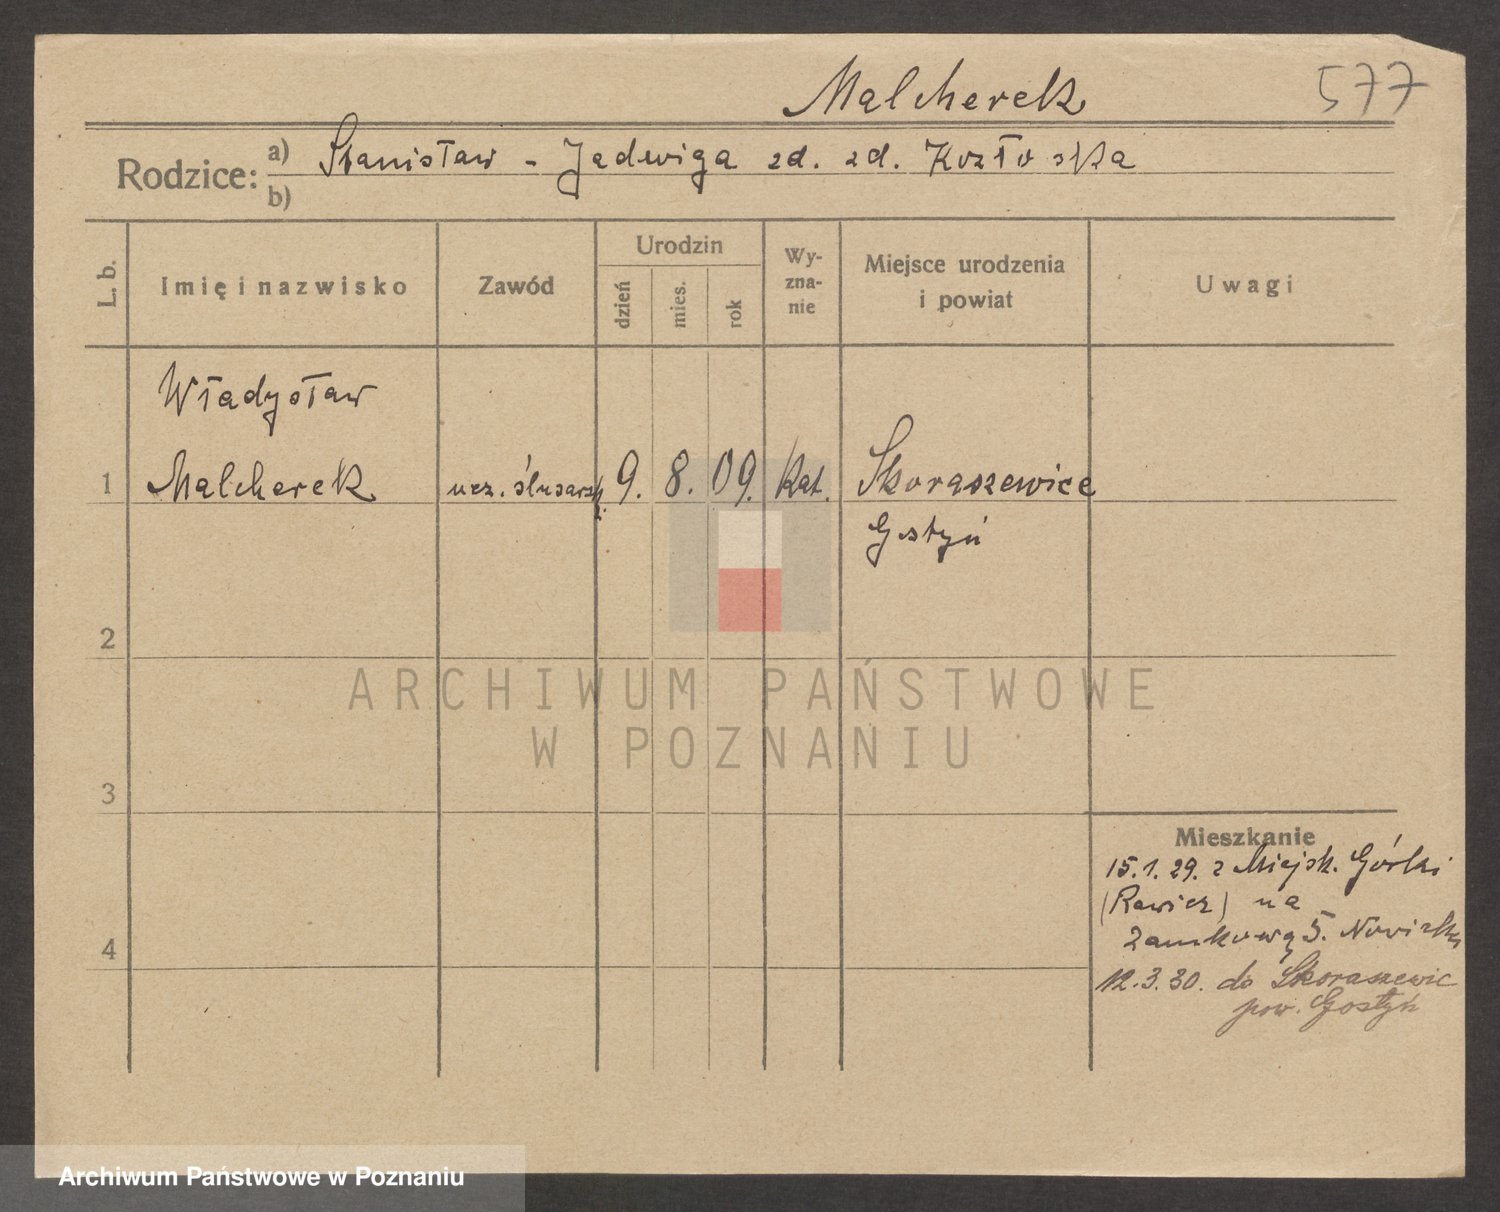 Malcherek 577
Rodzice: a) Stanisław - Jadwiga zd. zd. Kozłoska
b)
L. b. Imię i nazwisko Zawód Urodzin dzień mies. rok Wy-zna-nie Miejsce urodzenia i powiat Uwagi
Władysław
1 Malcherek ucz. ślusarsk. 9. 8. 09. Kat. Skoraszewice
Gstyń
2
ARCHIWUM PAŃSTWOWE
W POZNANIU
3
Mieszkanie
15.1.29. z Miejsk. Górki
(Rawicz) na
Zamkową 5.
4
12.3.30. do Skoraszewic
pow. Gostyń
Archiwum Państwowe w Poznaniu